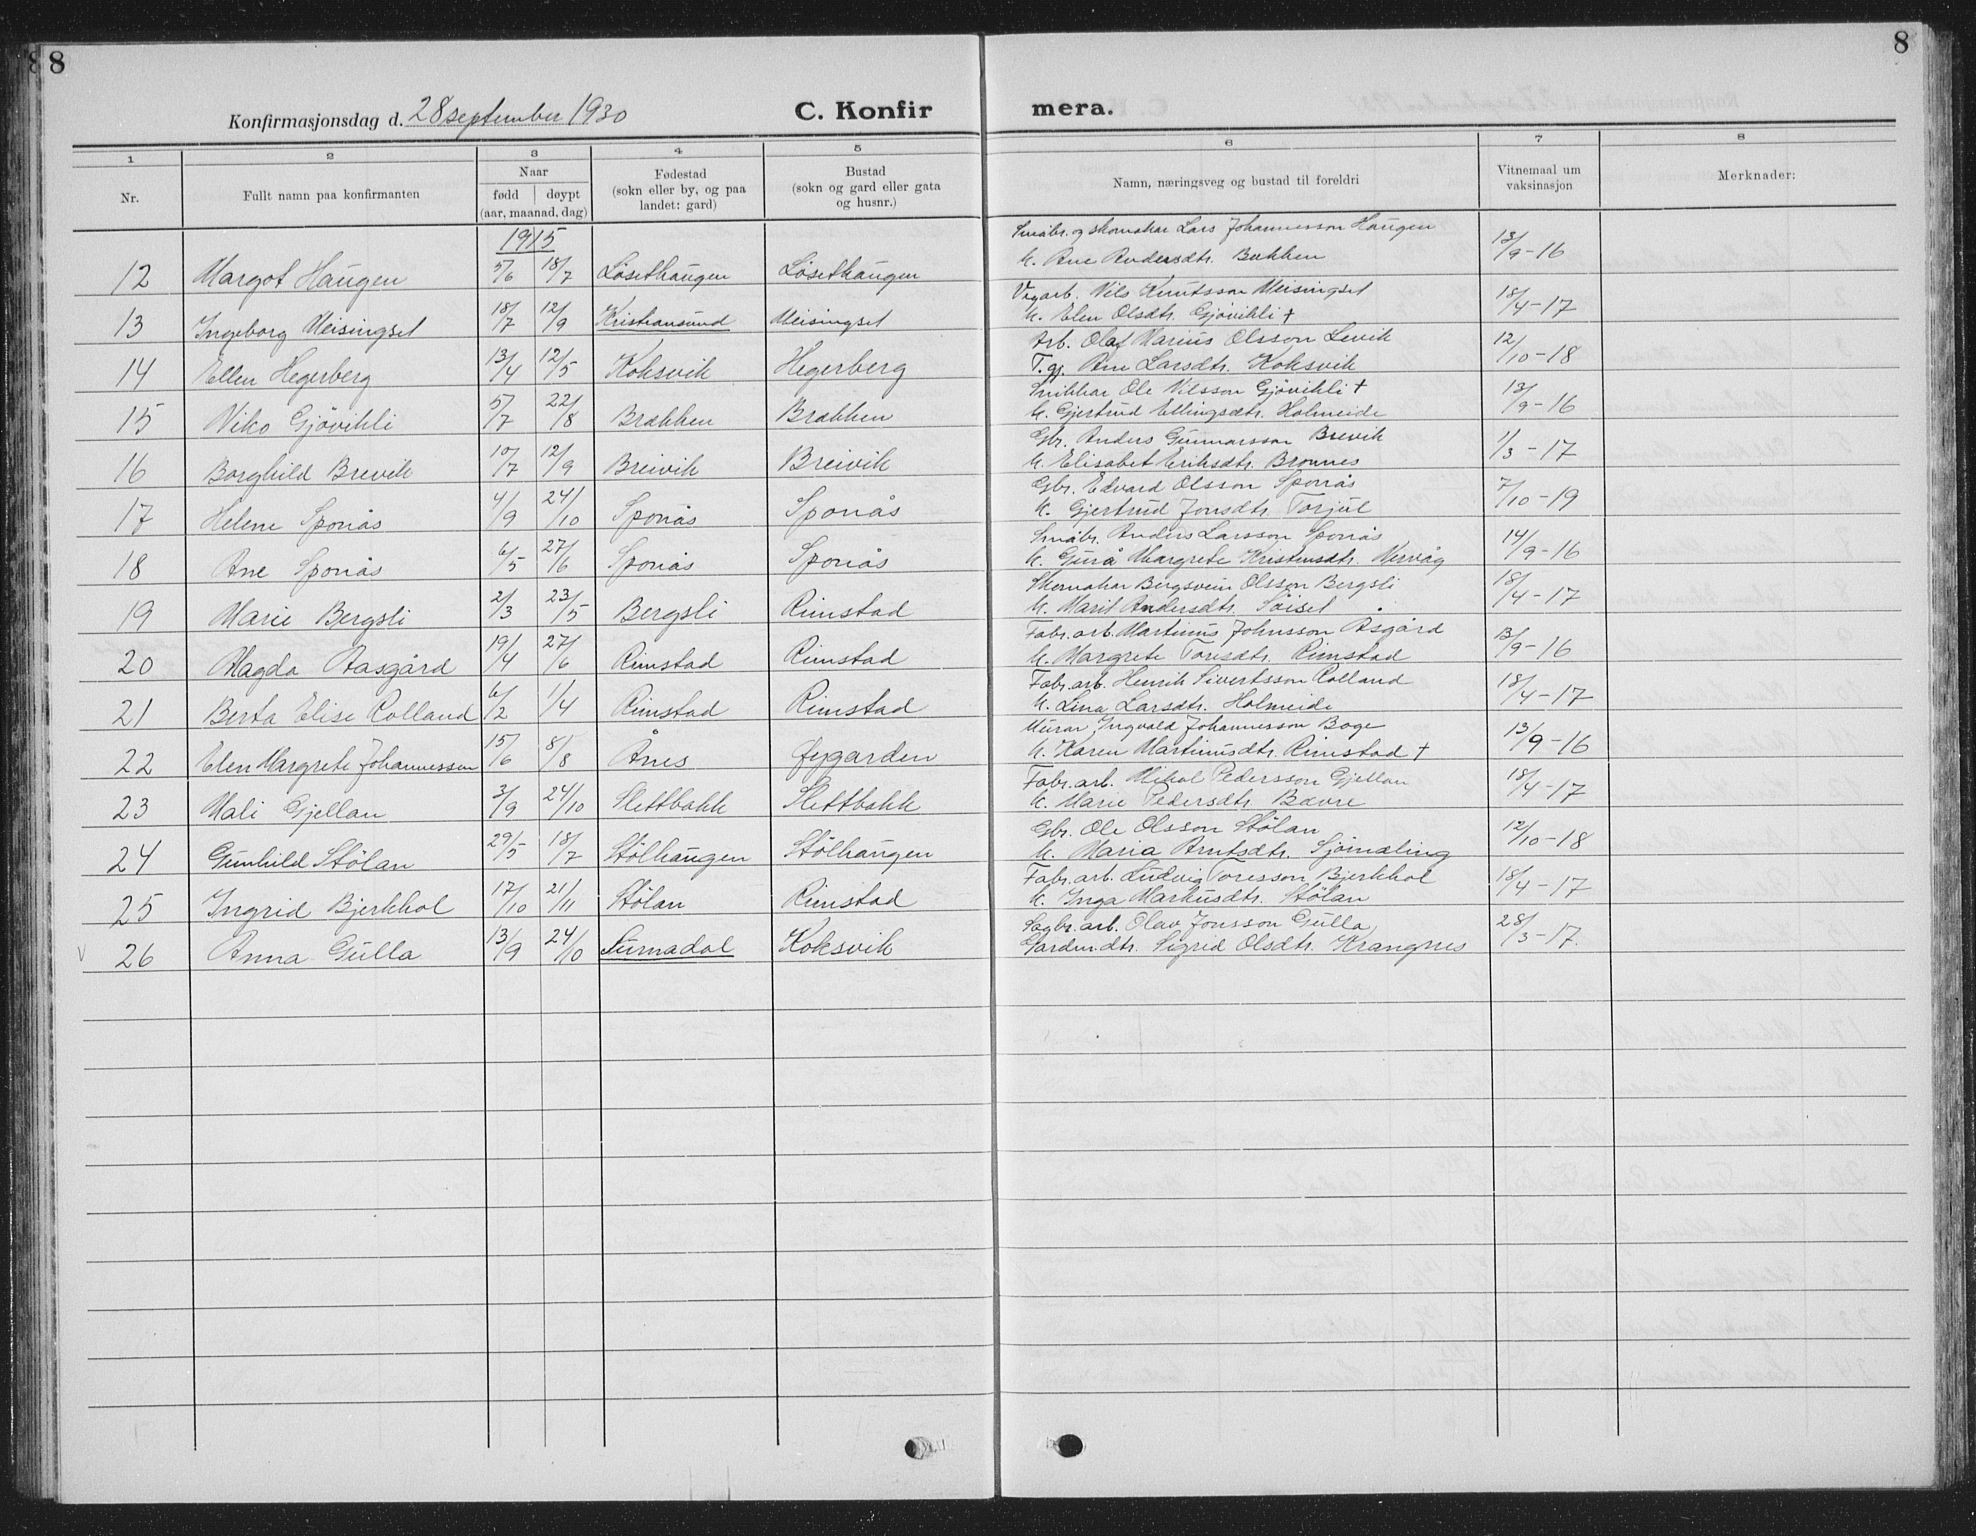 8
8
Konfirmasjonsdag d. 28 september 1930
C. Konfir
mera.
1 2 3 4 5 6 7 8
Nr. Fullt namn paa konfirmanten Naar fødd døypt (aar, maanad, dag) Fødestad (sokn eller by, og paa landet: gard) Bustad (sokn og gard eller gata og husnr.) Namn, næringsveg og bustad til foreldri Vitnemaal um vaksinasjon Merknader:
1915
Småbr. og skomakar Lars Johannesson Haugen
12 Margot Haugen 5/6 18/7 Løsethaugen Løsethaugen K. Ane Andersdtr. Bakken 13/9-16
Vegarb. Nils Knutsson Meisingset
13 Ingeborg Meisingset 18/7 12/9 Kristiansund Meisingset K. Elen Olsdtr. Gjøvikli + 18/4-17
Arb. Olaf Marius Olsson Levik
14 Ellen Hegerberg 13/4 12/5 Koksvik Hegerberg T. gj. Ane Larsdtr. Koksvik 12/10-18
Snikkar Ole Nilsson Gjøvikli +
15 Niko Gjøvikli 5/7 22/8 Brækken Brækken K. Gjertrud Ellingsdtr. Holmeide 13/9-16
Gbr. Anders Gunnarsson Brevik
16 Borghild Brevik 10/7 12/9 Breivik Breivik K. Elisabet Eriksdtr. Bronnes 1/3-17
Gbr. Edvard Olsson Sponås
17 Helene Sponås 4/9 24/10 Sponås Sponås K. Gjertrud Jonsdtr. Torjul 7/10-19
Småbr. Anders Larsson Sponås
18 Ane Sponås 6/5 27/6 Sponås Sponås K. Gurå Margrete Kristensdtr. Nervåg 14/9-16
Skomakar Bergsvein Olsson Bergsli
19 Marie Bergsli 2/3 23/5 Bergsli Rimstad K. Marit Andersdtr. Søiset 18/4-17
Fabr. arb. Martinus Johnsson Asgård
20 Magda Aasgård 19/4 27/6 Rimstad Rimstad K. Margrete Toresdtr. Rimstad 13/9-16
Fabr. arb. Henrik Sivertsson Rolland
21 Berta Elise Rolland 6/2 1/4 Rimstad Rimstad K. Lina Larsdtr. Holmeide 18/4-17
Murar Ingvald Johannesson Boge
22 Elen Margrete Johannessen 15/6 8/8 Ånes Øygarden K. Karen Martinusdtr. Rimstad + 13/9-16
Fabr. arb. Mikal Pedersson Gjellan
23 Mali Gjellan 3/9 24/10 Slettbakk Slettbakk K. Marie Pedersdtr. Bævre 18/4-17
Gbr. Ole Olsson Stølan
24 Gunhild Stølan 29/5 18/7 Stølhaugen Stølhaugen K. Maria Arntsdtr. Sjømæling 12/10-18
Fabr. arb. Ludvig Toresson Bjerkhol
25 Ingrid Bjerkhol 17/10 21/11 Stølan Rimstad K. Inga Markusdtr. Stølan 18/4-17
Sagbr. arb. Olav Jonsson Gulla
V 26 Anna Gulla 13/9 24/10 Surnadal Koksvik Gardm. dtr. Sigrid Olsdtr. Krangnes 28/3-17.